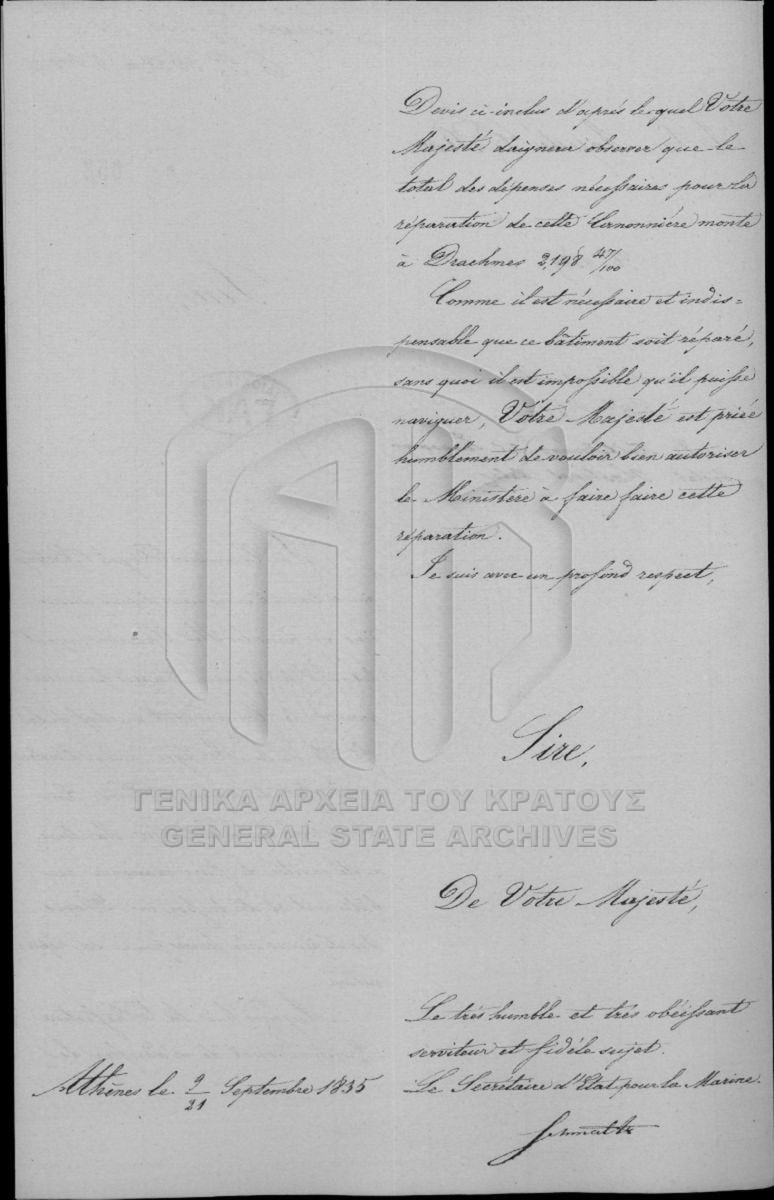 Devis ci-inclus d'après le quel Votre
Majesté daignera observer que le
total des dépenses nécessaires pour la
réparation de cette Canonnière monte
à Drachmes 2,198 47/100
Comme il est nécessaire et indis=
pensable que ce bâtiment soit réparé,
sans quoi il est impossible qu'il puisse
naviguer, Votre Majesté est priée
humblement de vouloir bien autoriser
le Ministère à faire faire cette
réparation.
Je suis avec un profond respect,
Sire,
ΓΕΝΙΚΑ ΑΡΧΕΙΑ ΤΟΥ ΚΡΑΤΟΥΣ
GENERAL STATE ARCHIVES
De Votre Majesté,
Le très humble et très obéissant
serviteur et fidèle sujet.
Le Secrétaire d'Etat pour la Marine.
Athènes le 9/21 Septembre 1835